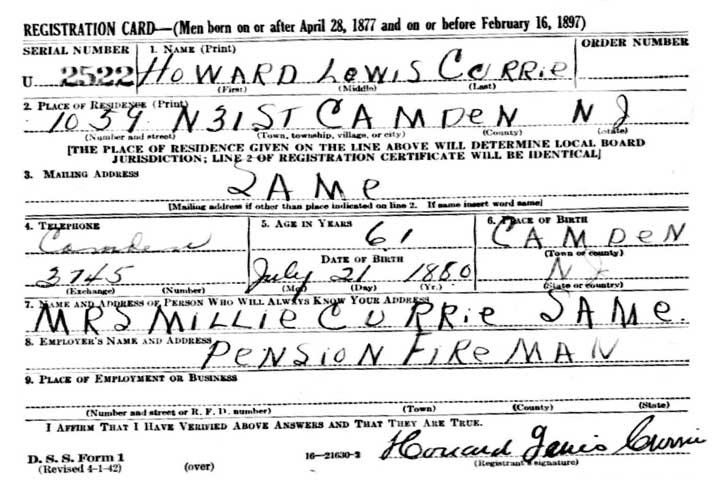 REGISTRATION CARD—(Men born on or after April 28, 1877 and on or before February 16, 1897)
SERIAL NUMBER 1. NAME (Print) ORDER NUMBER
U 2522 HOWARD LEWIS CURRIE
(First) (Middle) (Last)
2. PLACE OF RESIDENCE (Print)
1039 N 31 ST CAMDEN N J
(Number and street) (Town, township, village, or city) (County) (State)
[THE PLACE OF RESIDENCE GIVEN ON THE LINE ABOVE WILL DETERMINE LOCAL BOARD
JURISDICTION; LINE 2 OF REGISTRATION CERTIFICATE WILL BE IDENTICAL]
3. MAILING ADDRESS
SAME
[Mailing address if other than place indicated on line 2. If same insert word same]
4. TELEPHONE 5. AGE IN YEARS 6. PLACE OF BIRTH
Camden 61 CAMDEN
DATE OF BIRTH (Town or county)
3745 July 21 1880 N J
(Exchange) (Number) (Mo.) (Day) (Yr.) (State or country)
7. NAME AND ADDRESS OF PERSON WHO WILL ALWAYS KNOW YOUR ADDRESS
MRS MILLIE CURRIE SAME.
8. EMPLOYER'S NAME AND ADDRESS
PENSION FIREMAN
9. PLACE OF EMPLOYMENT OR BUSINESS
(Number and street or R. F. D. number) (Town) (County) (State)
I AFFIRM THAT I HAVE VERIFIED ABOVE ANSWERS AND THAT THEY ARE TRUE.
D. S. S. Form 1 16—21630-2 Howard Lewis Currie
(Revised 4-1-42) (over) (Registrant's signature)